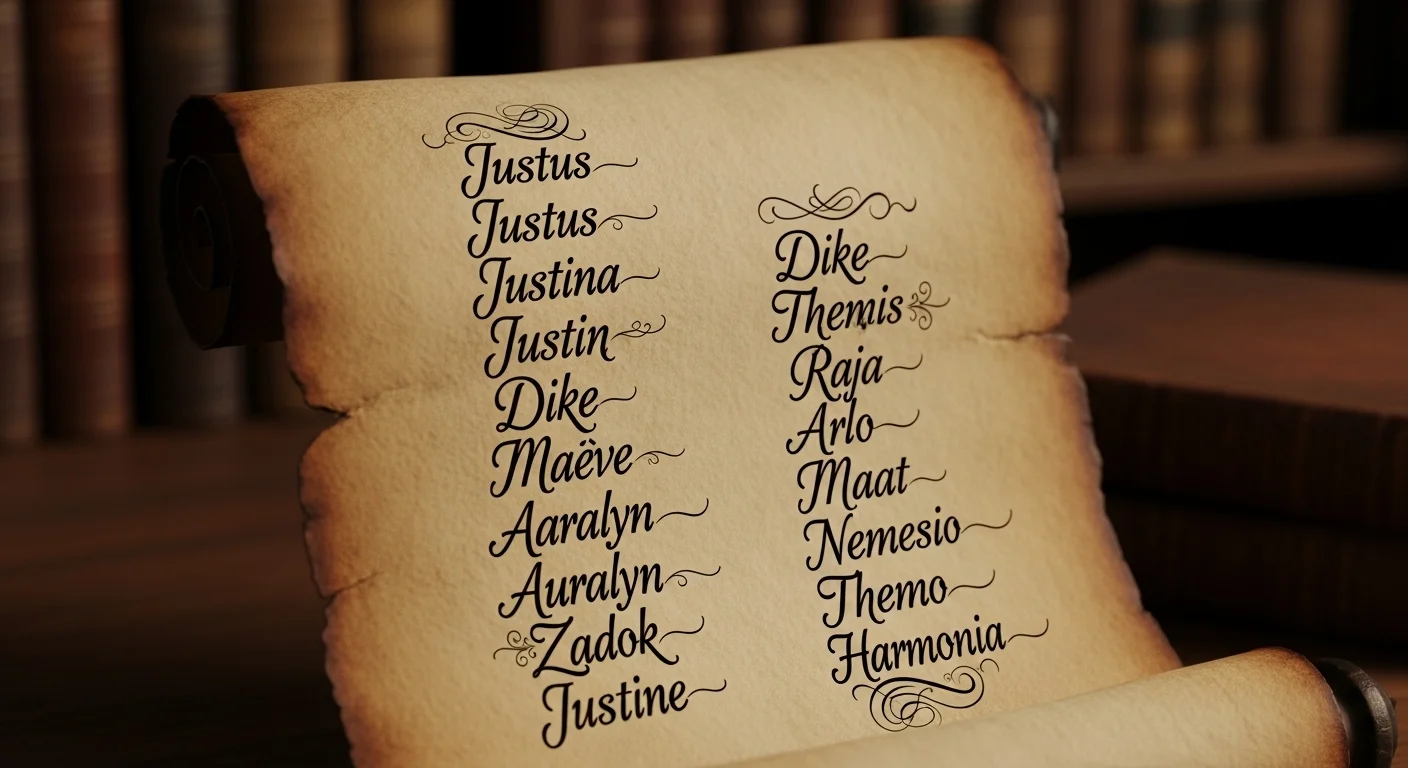 Justus
Justus
Justina
Justin
Dike
Maëve
Aaralyn
Auralyn
Zadok
Justine
Dike
Themis
Raja
Arlo
Maat
Nemesio
Themo
Harmonia